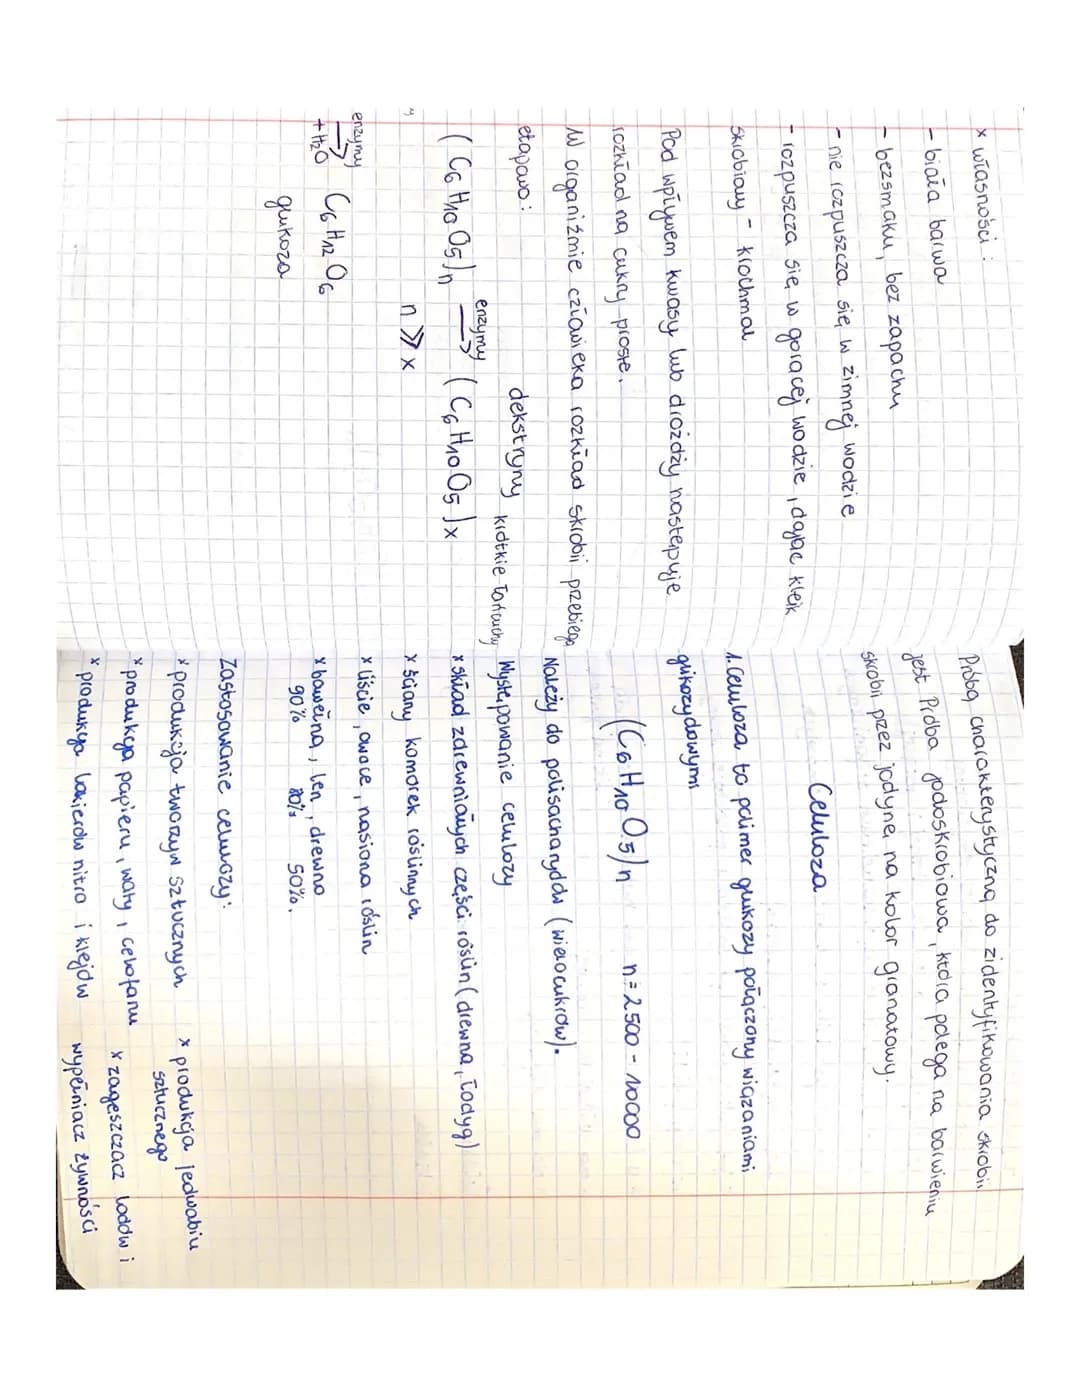 x własności :
- biała barwa
- bezsmaku, bez zapachu
- nie rozpuszcza się w zimnej wodzie
- rozpuszcza się w gorącej wodzie, dając kleik
skrobiowy - krochmal
Pod wpływem kwasy lub drożdży następuje
rozkład na cukry proste.
W organiźmie człowieka rozkład skrobii przebiega
etapowo:
dekstryny krótkie łańcuchy
(C6H10O5)n enzymy → (C6H10O5)x
n >> x
enzymy → +H2O C6H12O6
glukoza
Próbą charakterystyczną do zidentyfikowania skrobii
jest Próba jodoskrobiowa, która polega na barwieniu
skrobii przez jodynę na kolor granatowy.
Celuloza
1. Celuloza to polimer glukozy połączony wiązaniami
glikozydowymi
(C6H10O5)n n = 2500 - 10000
Należy do polisacharydów (wielocukrów).
Występowanie celulozy
x skład zdrewniałych części roślin (drewna, łodyg)
x ściany komórek roślinnych
x liście, owoce, nasiona roślin
x bawełna, len, drewno
90% 80% 50%.
Zastosowanie celulozy:
x produkcja tworzyw sztucznych x produkcja jedwabiu
sztucznego
x produkcja papieru, waty, celofanu x zagęszczacz lodów i
x produkcja lakierów nitro i klejów wypełniacz żywności